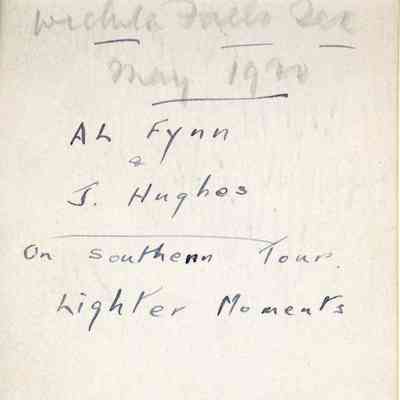 Wichita Falls Tex
May 1920
AL Fynn
&
J. Hughes
On Southern Tour.
Lighter Moments